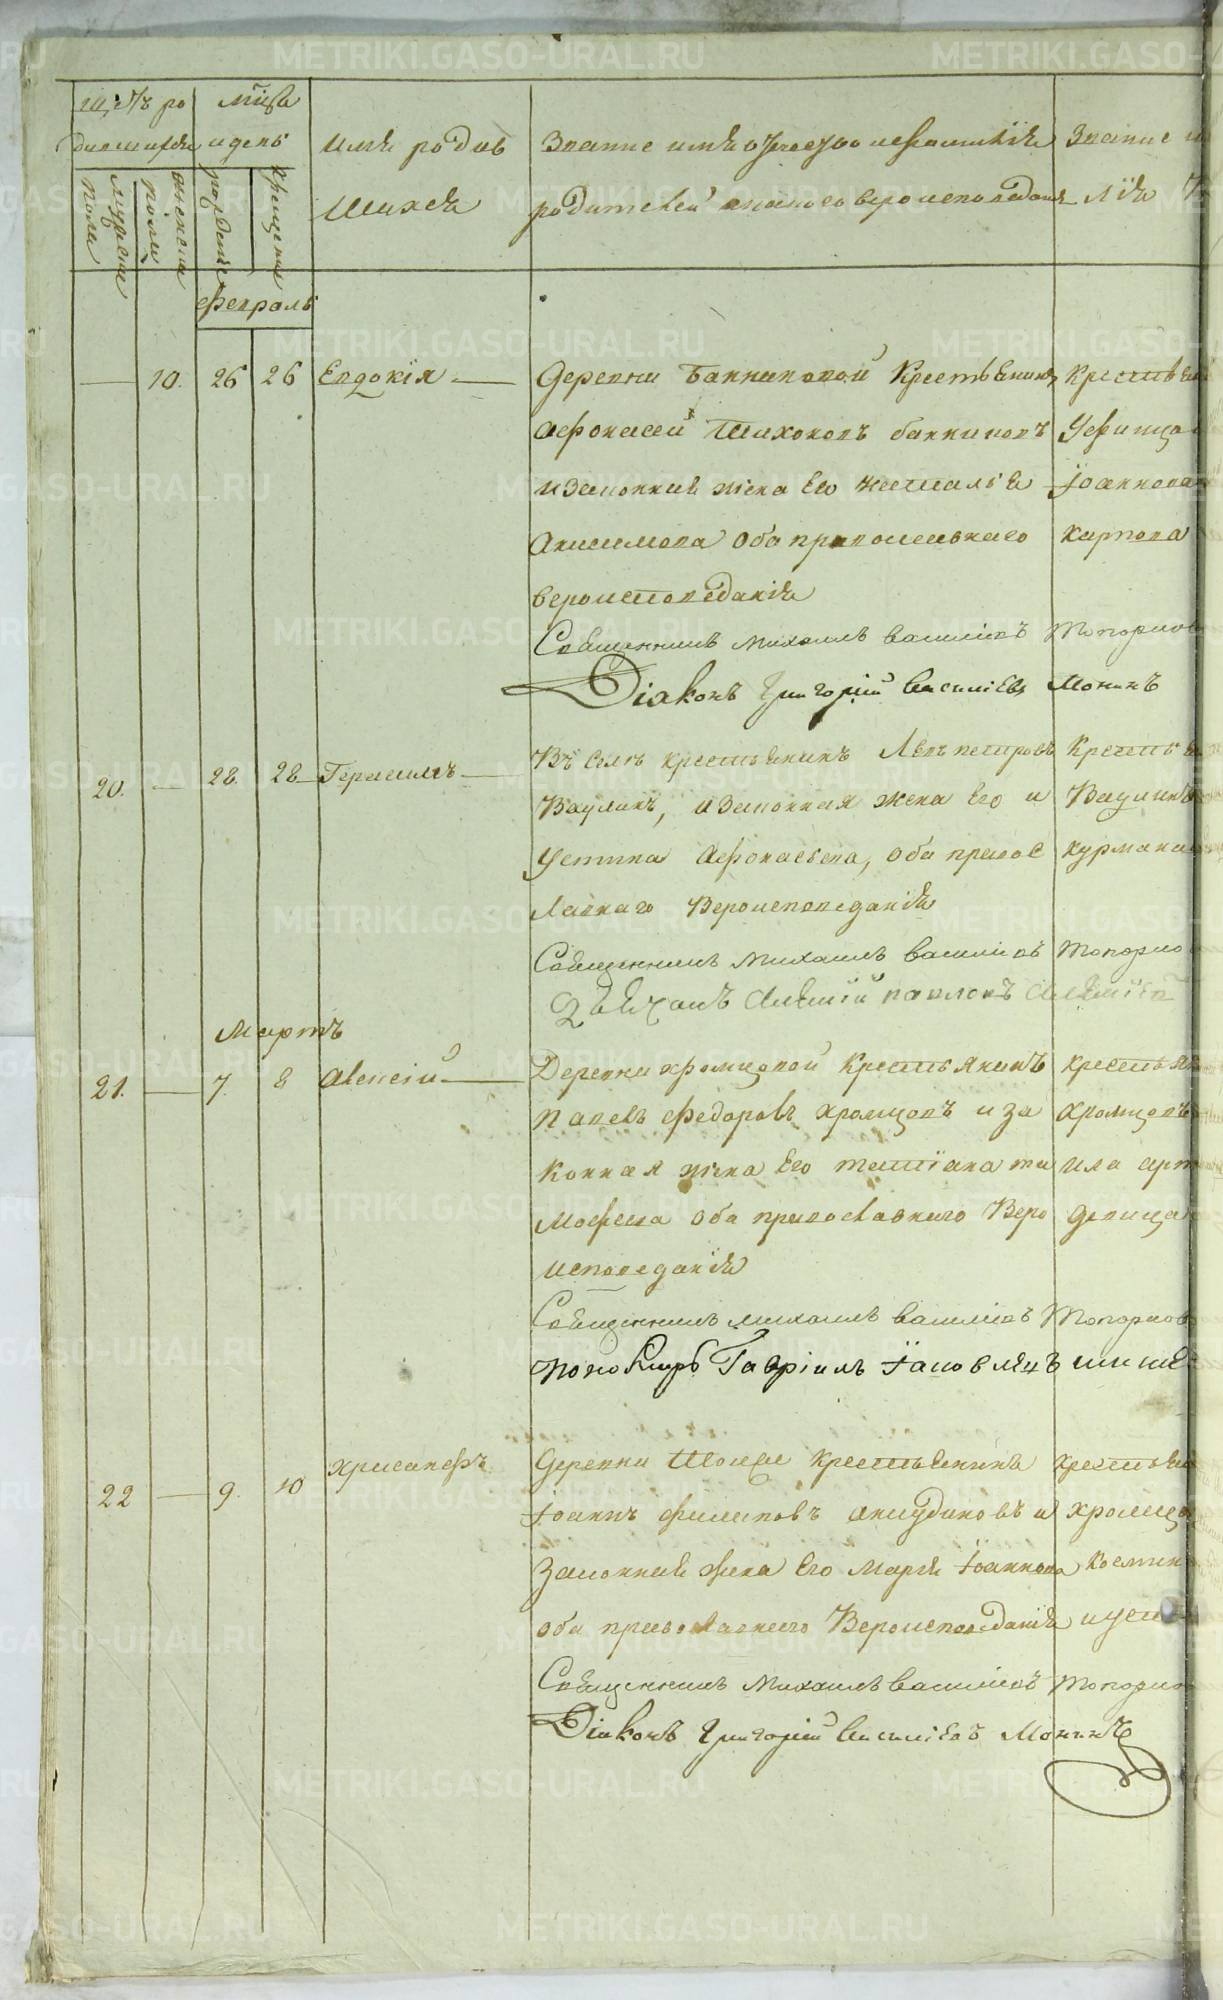 Щетъ ро
дившихся
мужеска пола
женска пола
мца и день
рождения
крещения
имя родив
шихся
Звание имя отчество и фамилия
родителей и какого вероисповедания
Звание и
февраль
10. 26 26 Евдокія
Деревни Банниковой Крестьянинъ
Афонасей Тихоновъ банниковъ
и законная жена Его Наталья
Анисимова оба православнаго
вероисповѣданія
Крестья
Уфинца
Іоаннова
Карпова
Священникъ Михаилъ Василіевъ Топорков
Діаконъ Григорій Василіевъ Монинъ
20. 28. 28 Герасимъ
Въ Селѣ крестьянинъ Левъ петровъ
Ваулинъ, и законная жена Его и
Устина Афонасьева, оба правос
лавнаго Вероисповеданія
Крестья
Ваулинъ
курмана
Священникъ Михаилъ Василіевъ Топорко
Дьячокъ Алексій павловъ
Мартъ
21. 7. 8 Алексій
Деревни хромцовой Крестьянинъ
Павелъ Федоровъ хромцовъ и за
конная жена Его татіана ти
мофеева оба православнаго Веро
исповеданія
крестьян
хромцовъ
девица
Священникъ михаилъ Василіевъ Топорков
пономарь Гавріилъ Іаковлевъ
22 9. 10 хрисанфъ
Деревни крестьянинъ
Іоаннъ филиповъ анкудиновъ и
Законная жена Его Марія Іоаннова
оба православнаго Вероисповеданія
крестья
хромцо
Священникъ Михаилъ Василіевъ Топорко
Діаконъ Григорій Василіевъ Монинъ
METRIKI.GASO-URAL.RU